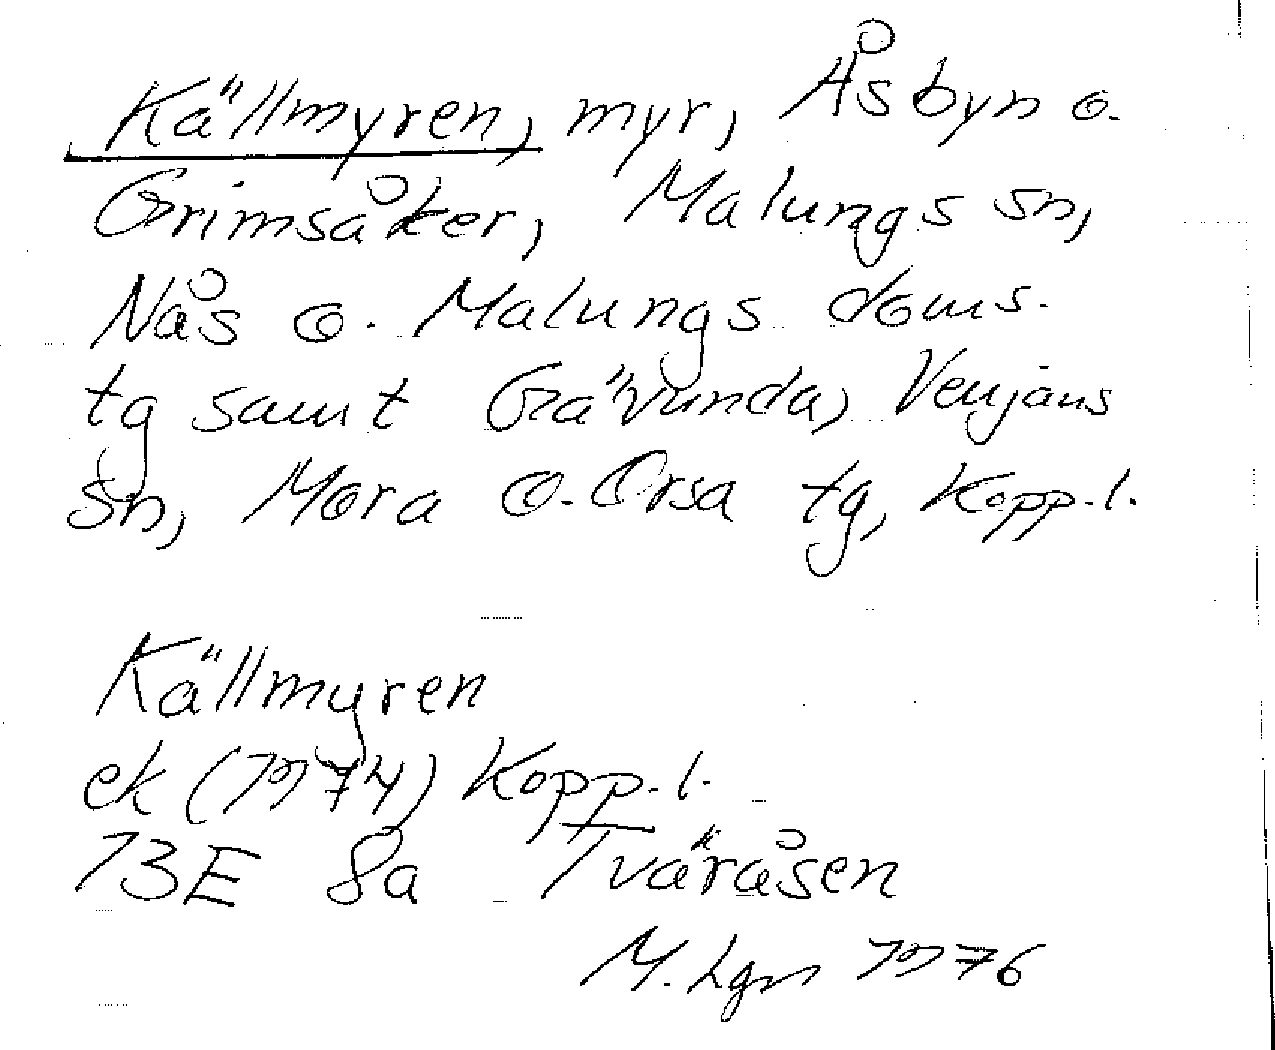 Källmyren, myr, Åsbyn o.
Grimsåker, Malungs sn,
Nås o. Malungs doms.
tg samt Gävunda, Venjans
sn, Mora o. Orsa tg, Kopp. l.
Källmyren
ek (1974) Kopp. l.
13E 8a Tväråsen
M. Lgn 1976